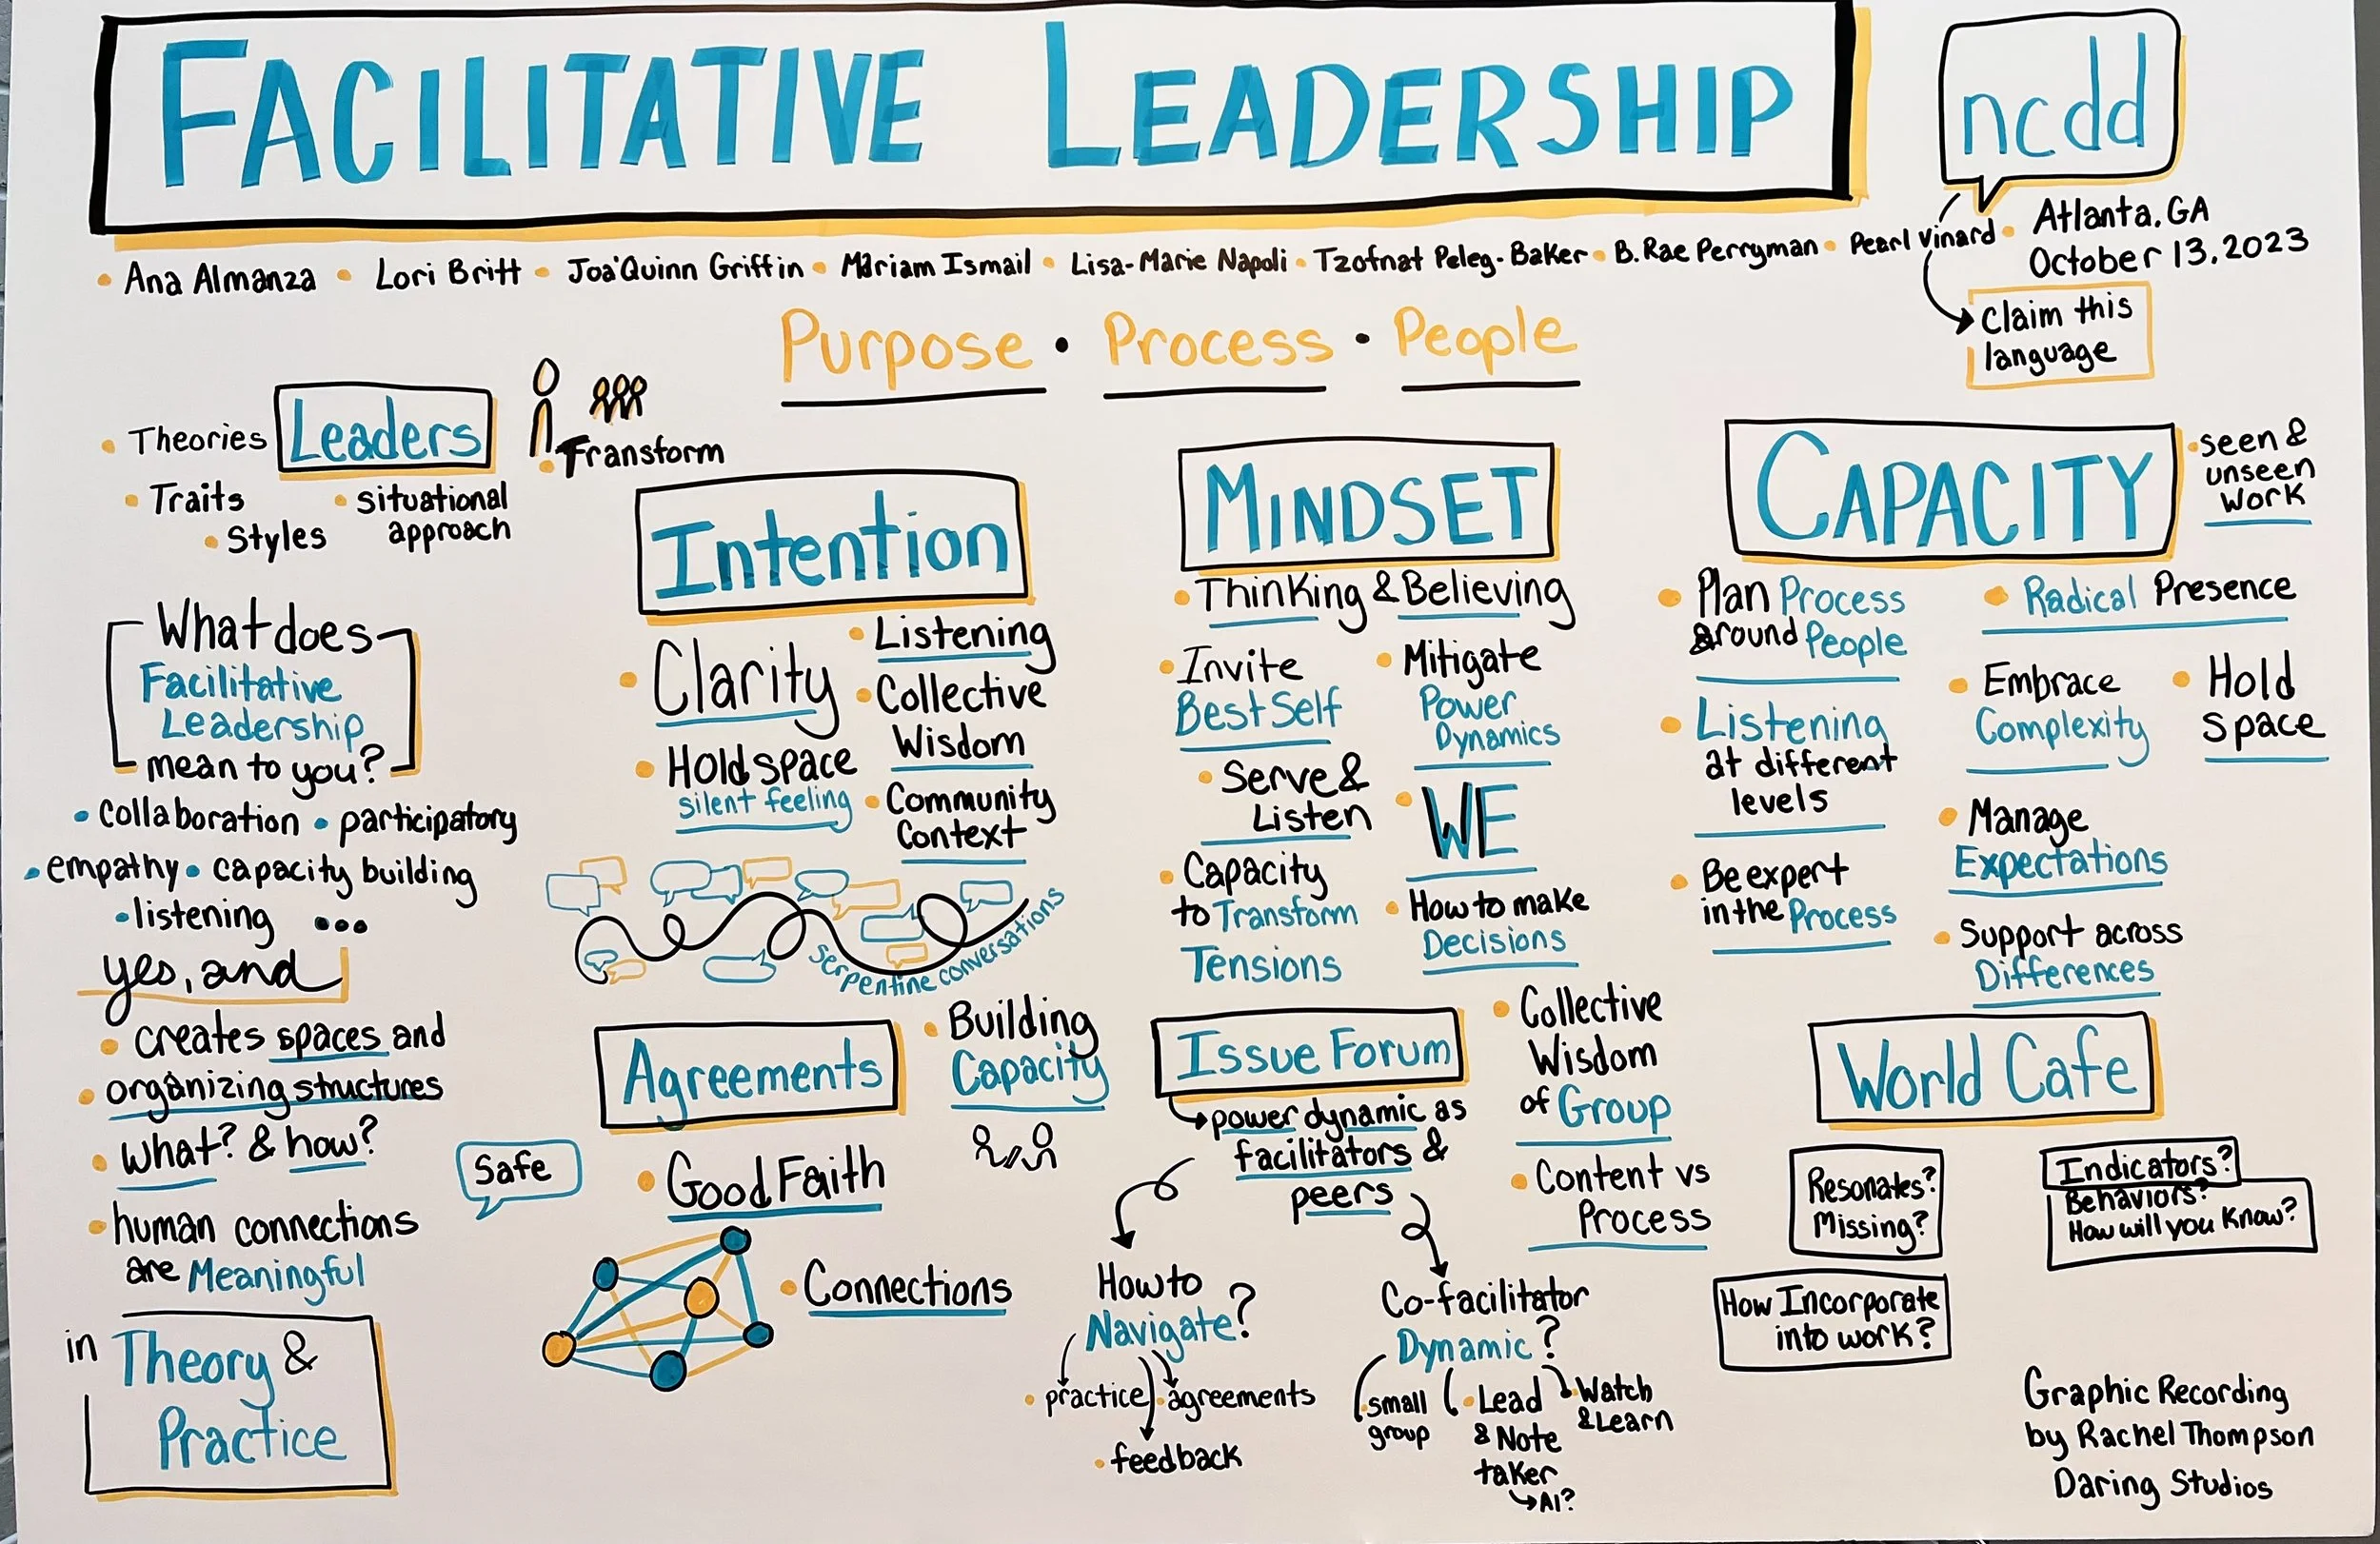 FACILITATIVE LEADERSHIP
ncdd
Atlanta, GA
October 13, 2023
• Ana Almanza • Lori Britt • Joa'Quinn Griffin • Mariam Ismail • Lisa-Marie Napoli • Tzofnat Peleg-Baker • B. Rae Perryman • Pearl Vinard •
Claim this
language
Purpose • Process • People
• Theories
Leaders
• Transform
• Traits
• Styles
• situational
approach
What does
Facilitative
Leadership
mean to you?
• collaboration • participatory
• empathy • capacity building
• listening ...
yes, and
• creates spaces and
• organizing structures
• what? & how?
• human connections
are Meaningful
in Theory &
Practice
Intention
• Clarity
• Listening
• Collective
Wisdom
• Hold space
silent feeling
• Community
Context
serpentine conversations
Agreements
• Building
Capacity
Safe
• Good Faith
• Connections
MINDSET
• Thinking & Believing
• Invite
Best Self
• Mitigate
Power
Dynamics
• Serve &
Listen
• WE
• Capacity
to Transform
Tensions
• How to make
Decisions
Issue Forum
power dynamic as
facilitators &
peers
• Collective
Wisdom
of Group
• Content vs
Process
How to
Navigate?
• practice
• agreements
• feedback
Co-facilitator
Dynamic?
• small
group
• Lead
& Note
taker
AI?
• Watch
& Learn
CAPACITY
• seen &
unseen
work
• Plan Process
around People
• Radical Presence
• Listening
at different
levels
• Embrace
Complexity
• Hold
space
• Be expert
in the Process
• Manage
Expectations
• Support across
Differences
World Cafe
Resonates?
Missing?
Indicators?
Behaviors?
How will you know?
How Incorporate
into work?
Graphic Recording
by Rachel Thompson
Daring Studios